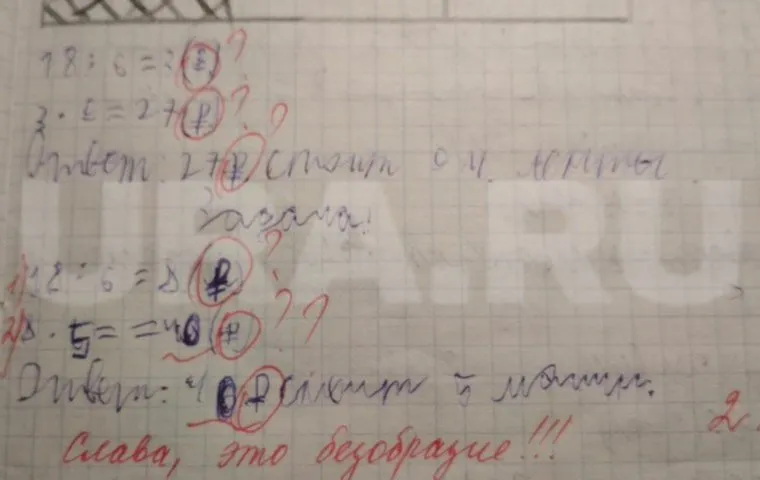 18 : 6 = 3 (₽) ?
3 · 9 = 27 (₽) ?
Ответ 27 ₽ стоит 9 м. ленты ?
Задача.
1) 48 : 6 = 8 (₽) ?
2) 8 · 5 = = 40 (₽) ??
Ответ: 40 ₽ стоит 5
Слава, это безобразие!!! 2
URA.RU